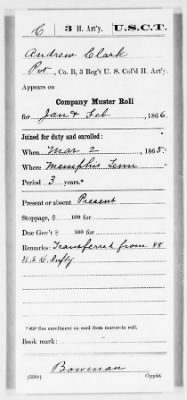 C 3 H. Art'y. U.S.C.T.
Andrew Clark
Pvt, Co. B, 3 Reg't U. S. Col'd H. Art'y.
Appears on
Company Muster Roll
for Jan & Feb, 1866.
Joined for duty and enrolled:
When Mar 2, 1865.
Where Memphis Tenn
Period 3 years.*
Present or absent Present
Stoppage, $ 100 for
Due Gov't $ 100 for
Remarks: Transferred from
U.S.C. Infty
*See the enrollment on card from muster-in roll.
Book mark:
Bowman
(358c) Copyist.